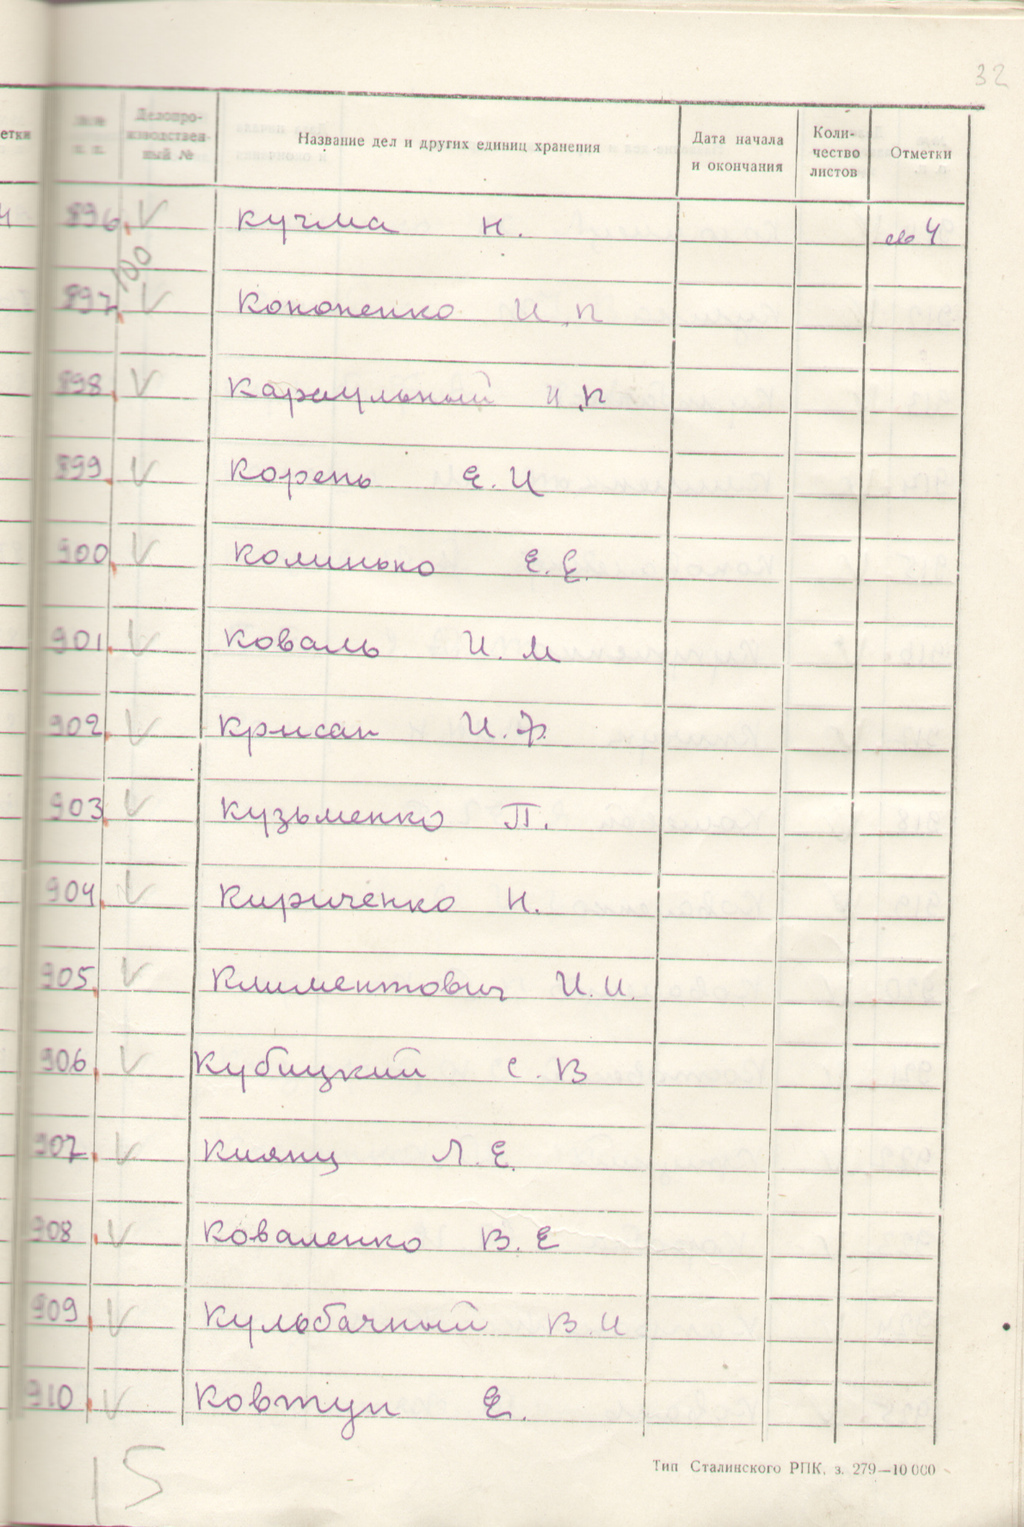 32
етки
№№ п. п.
Делопро-
изводствен-
ный №
Название дел и других единиц хранения
Дата начала
и окончания
Коли-
чество
листов
Отметки
896. V Кучма Н. 4
100
897. V Кононенко И.П
898. V Караульный И.П
899. V Корень Е.И
900. V Колинько Е.Е.
901. V Коваль И.М
902. V Крисан И.Ф.
903. V Кузьменко П.
904. V Кириченко Н.
905. V Климентович И.И.
906. V Кубицкий С.В
907. V Киянц Л.Е.
908. V Коваленко В.Е
909. V Кульбачный В.И
910. V Ковтун Е.
15
Тип Сталинского РПК, з. 279—10 000